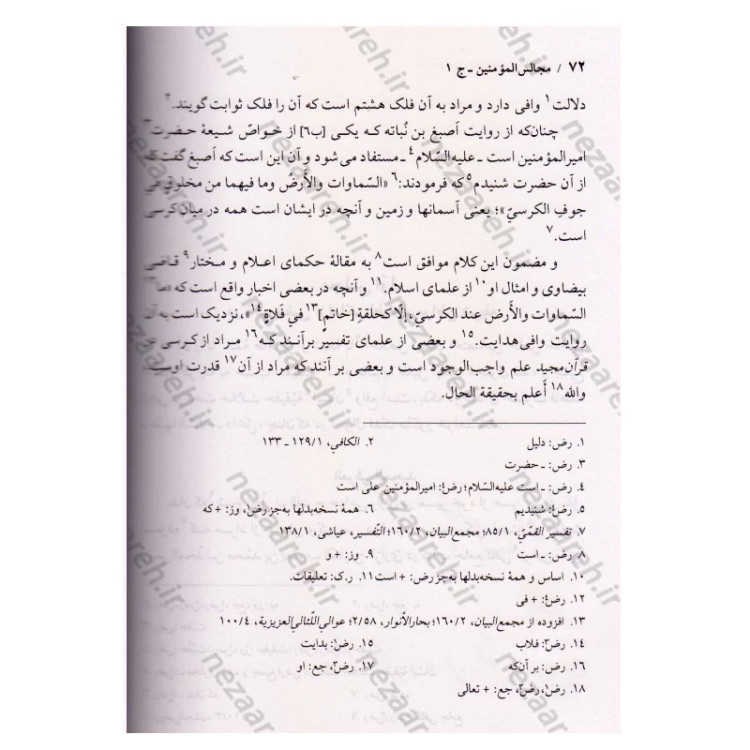 ۷۲ / مجالس‌المؤمنین ـ ج ۱
دلالت۱ وافی دارد و مراد به آن فلک هشتم است که آن را فلک ثوابت گویند.۲
چنان‌که از روایت اَصبغ بن نُباته که یکی [ب۶] از خواصّ شیعهٔ حضرت۳
امیرالمؤمنین است ـ علیه‌السّلام۴ ـ مستفاد می‌شود و آن این است که اَصبغ گفت که
از آن حضرت شنیدم۵ که فرمودند:۶ «السّماوات والأرضُ وما فیهما من مخلوقٍ في
جوفِ الکرسيّ»؛ یعنی آسمانها و زمین و آنچه در ایشان است همه در میان کرسی
است.۷
و مضمون این کلام موافق است۸ به مقالهٔ حکمای اعلام و مختار۹ قاضی
بیضاوی و امثال او۱۰ از علمای اسلام.۱۱ و آنچه در بعضی اخبار واقع است که «ما۱۲
السّماوات والأرض عند الکرسيّ، إلّا کحلقةِ [خاتمٍ]۱۳ في فَلاةٍ۱۴»، نزدیک است به آن
روایت وافی‌هدایت.۱۵ و بعضی از علمای تفسیر برآنند که۱۶ مراد از کرسی در
قرآن مجید علم واجب‌الوجود است و بعضی بر آنند که مراد از آن۱۷ قدرت اوست.
والله۱۸ أعلم بحقیقة الحال.
۱. رض: دلیل
۲. الکافي، ۱۲۹/۱ ـ ۱۳۳
۳. رض: ـ حضرت
۴. رض: ـ است علیه‌السّلام؛ رض۴: امیرالمؤمنین علی است
۵. رض۴: شنیدیم
۶. همهٔ نسخه‌بدلها به‌جز رض۱، وز: + که
۷. تفسیر القمّي، ۸۵/۱؛ مجمع‌البیان، ۱۶۰/۲؛ التّفسیر، عیاشی، ۱۳۸/۱
۸. رض: ـ است
۹. وز: + و
۱۰. اساس و همهٔ نسخه‌بدلها به‌جز رض: + است
۱۱. ر.ک: تعلیقات.
۱۲. رض۴: + فی
۱۳. افزوده از مجمع‌البیان، ۱۶۰/۲؛ بحارالأنوار، ۲/۵۸؛ عوالي‌اللّئالي‌العزیزیة، ۱۰۰/۴
۱۴. رض۲: فلاب
۱۵. رض۱: بدایت
۱۶. رض: بر آن‌که
۱۷. رض۲، جع: او
۱۸. رض۱، رض۲، جع: + تعالی
nezaareh.ir